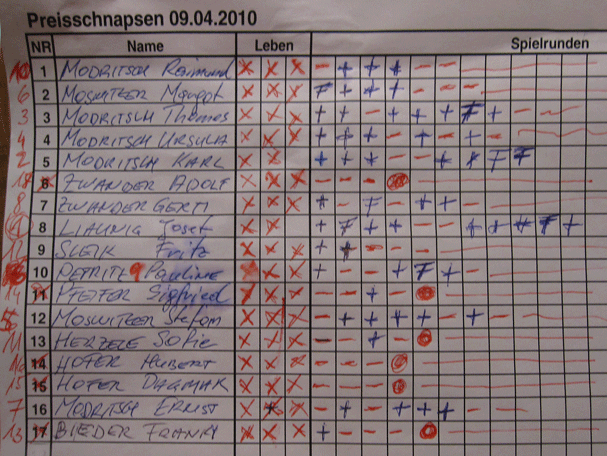 Preisschnapsen 09.04.2010
NR Name Leben Spielrunden
10 1 MODRITSCH Raimund X X X - + + + - -
6 2 Margot X X X F + + + - - -
3 3 MODRITSCH Thomas X X X + + - + + + F + - -
4 4 MODRITSCH URSULA X X X + + + - + - + -
2 5 MODRITSCH KARL X X X + + + - - + + F F
6 ZWANDER ADOLF X X X - - -
7 ZWANDER GERTI X X X + - F - + + -
8 LIAUNIG Josef X X + F + + - - + + + F +
9 Fritz X X X + + - - -
10 PETRITZ Pauline X X X + - - + F + -
14 11 PFEIFER Sigfried X X X - - + -
12 Stefan X X X - + + + + - + -
11 13 HERZELE Sofie X X X - - + -
14 HOFER HUBERT X X X - - -
15 15 HOFER DAGMAR X X X - - -
7 16 MODRITSCH ERNST X X X - + - + + + - -
13 17 BIEDER FRANKY X X X + - - -